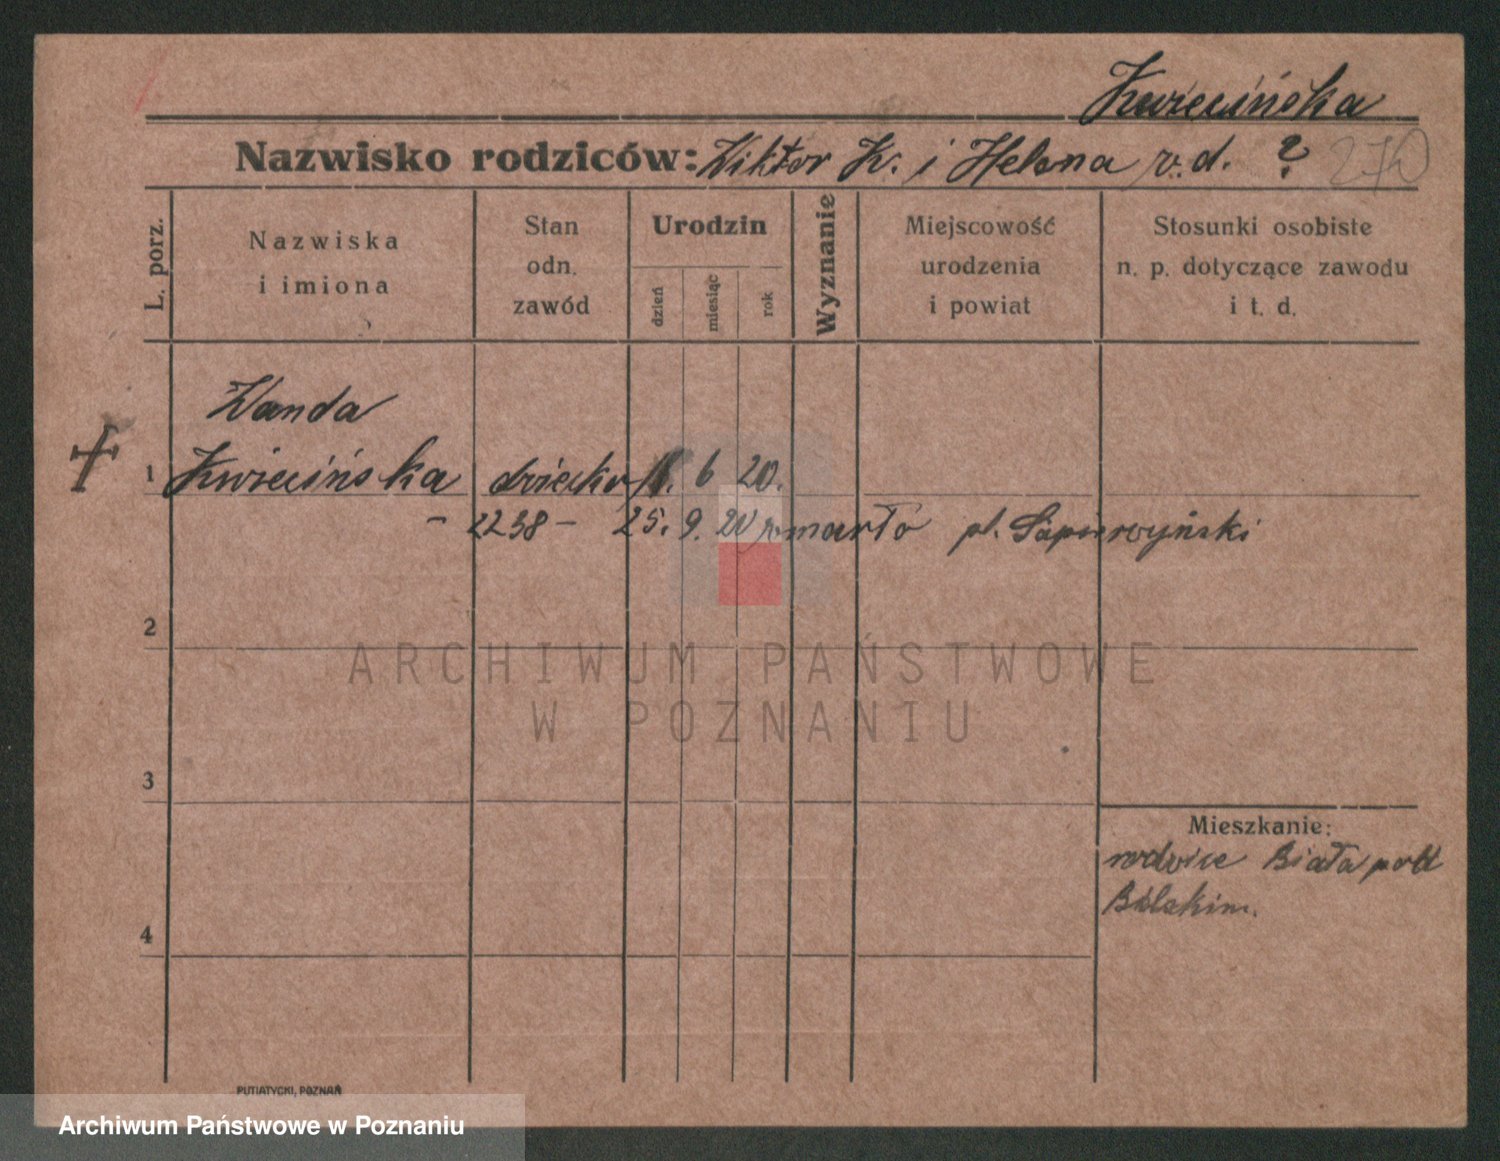 Kwiecińska
Nazwisko rodziców: Wiktor K. i Helena z.d. ? 270
L. porz.
Nazwiska
i imiona
Stan
odn.
zawód
Urodzin
dzień
miesiąc
rok
Wyznanie
Miejscowość
urodzenia
i powiat
Stosunki osobiste
n. p. dotyczące zawodu
i t. d.
Wanda
1 Kwiecińska dziecko 11. 6 20.
- 2238 - 25. 9. 20 zmarło pl. Sapierzyński
2
3
4
Mieszkanie:
rodzice Biała pod
Bielskim.
PUTIATYCKI, POZNAŃ
ARCHIWUM PAŃSTWOWE
W POZNANIU
Archiwum Państwowe w Poznaniu